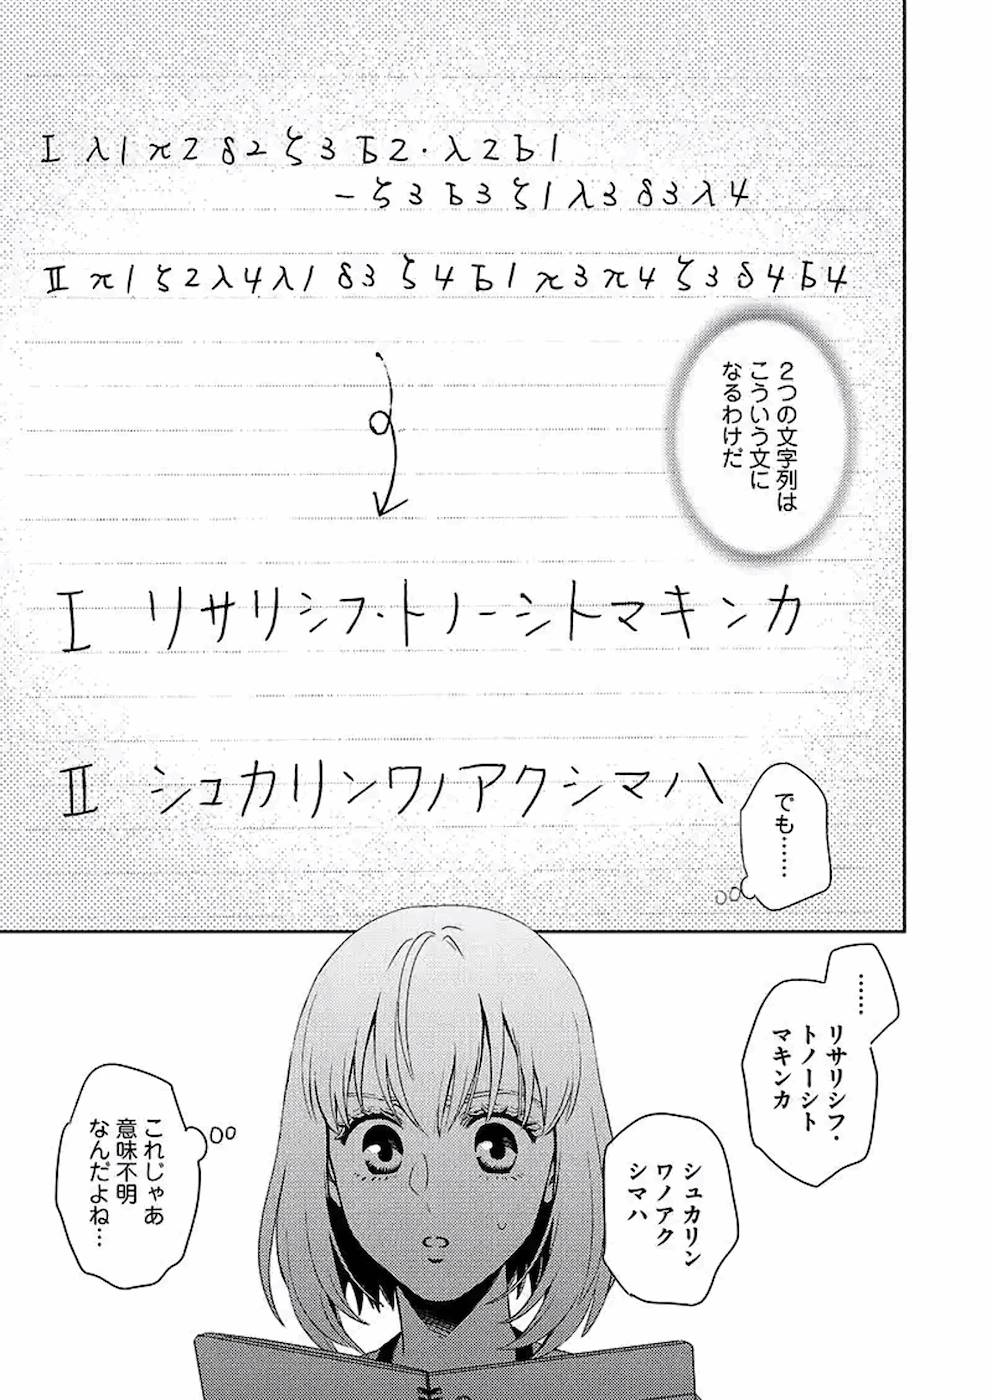 I λ1π2δ2ζ3Ъ2・λ2Ъ1
−ζ3Ъ3ζ1λ3δ3λ4
II π1ζ2λ4λ1δ3ζ4Ъ1π3π4ζ3δ4Ъ4
2つの文字列は
こういう文に
なるわけだ
I リサリシフ・トノーシトマキンカ
II シュカリンワノアクシマハ
でも……
……
リサリシフ・
トノーシト
マキンカ
シュカリン
ワノアク
シマハ
これじゃあ
意味不明
なんだよね…